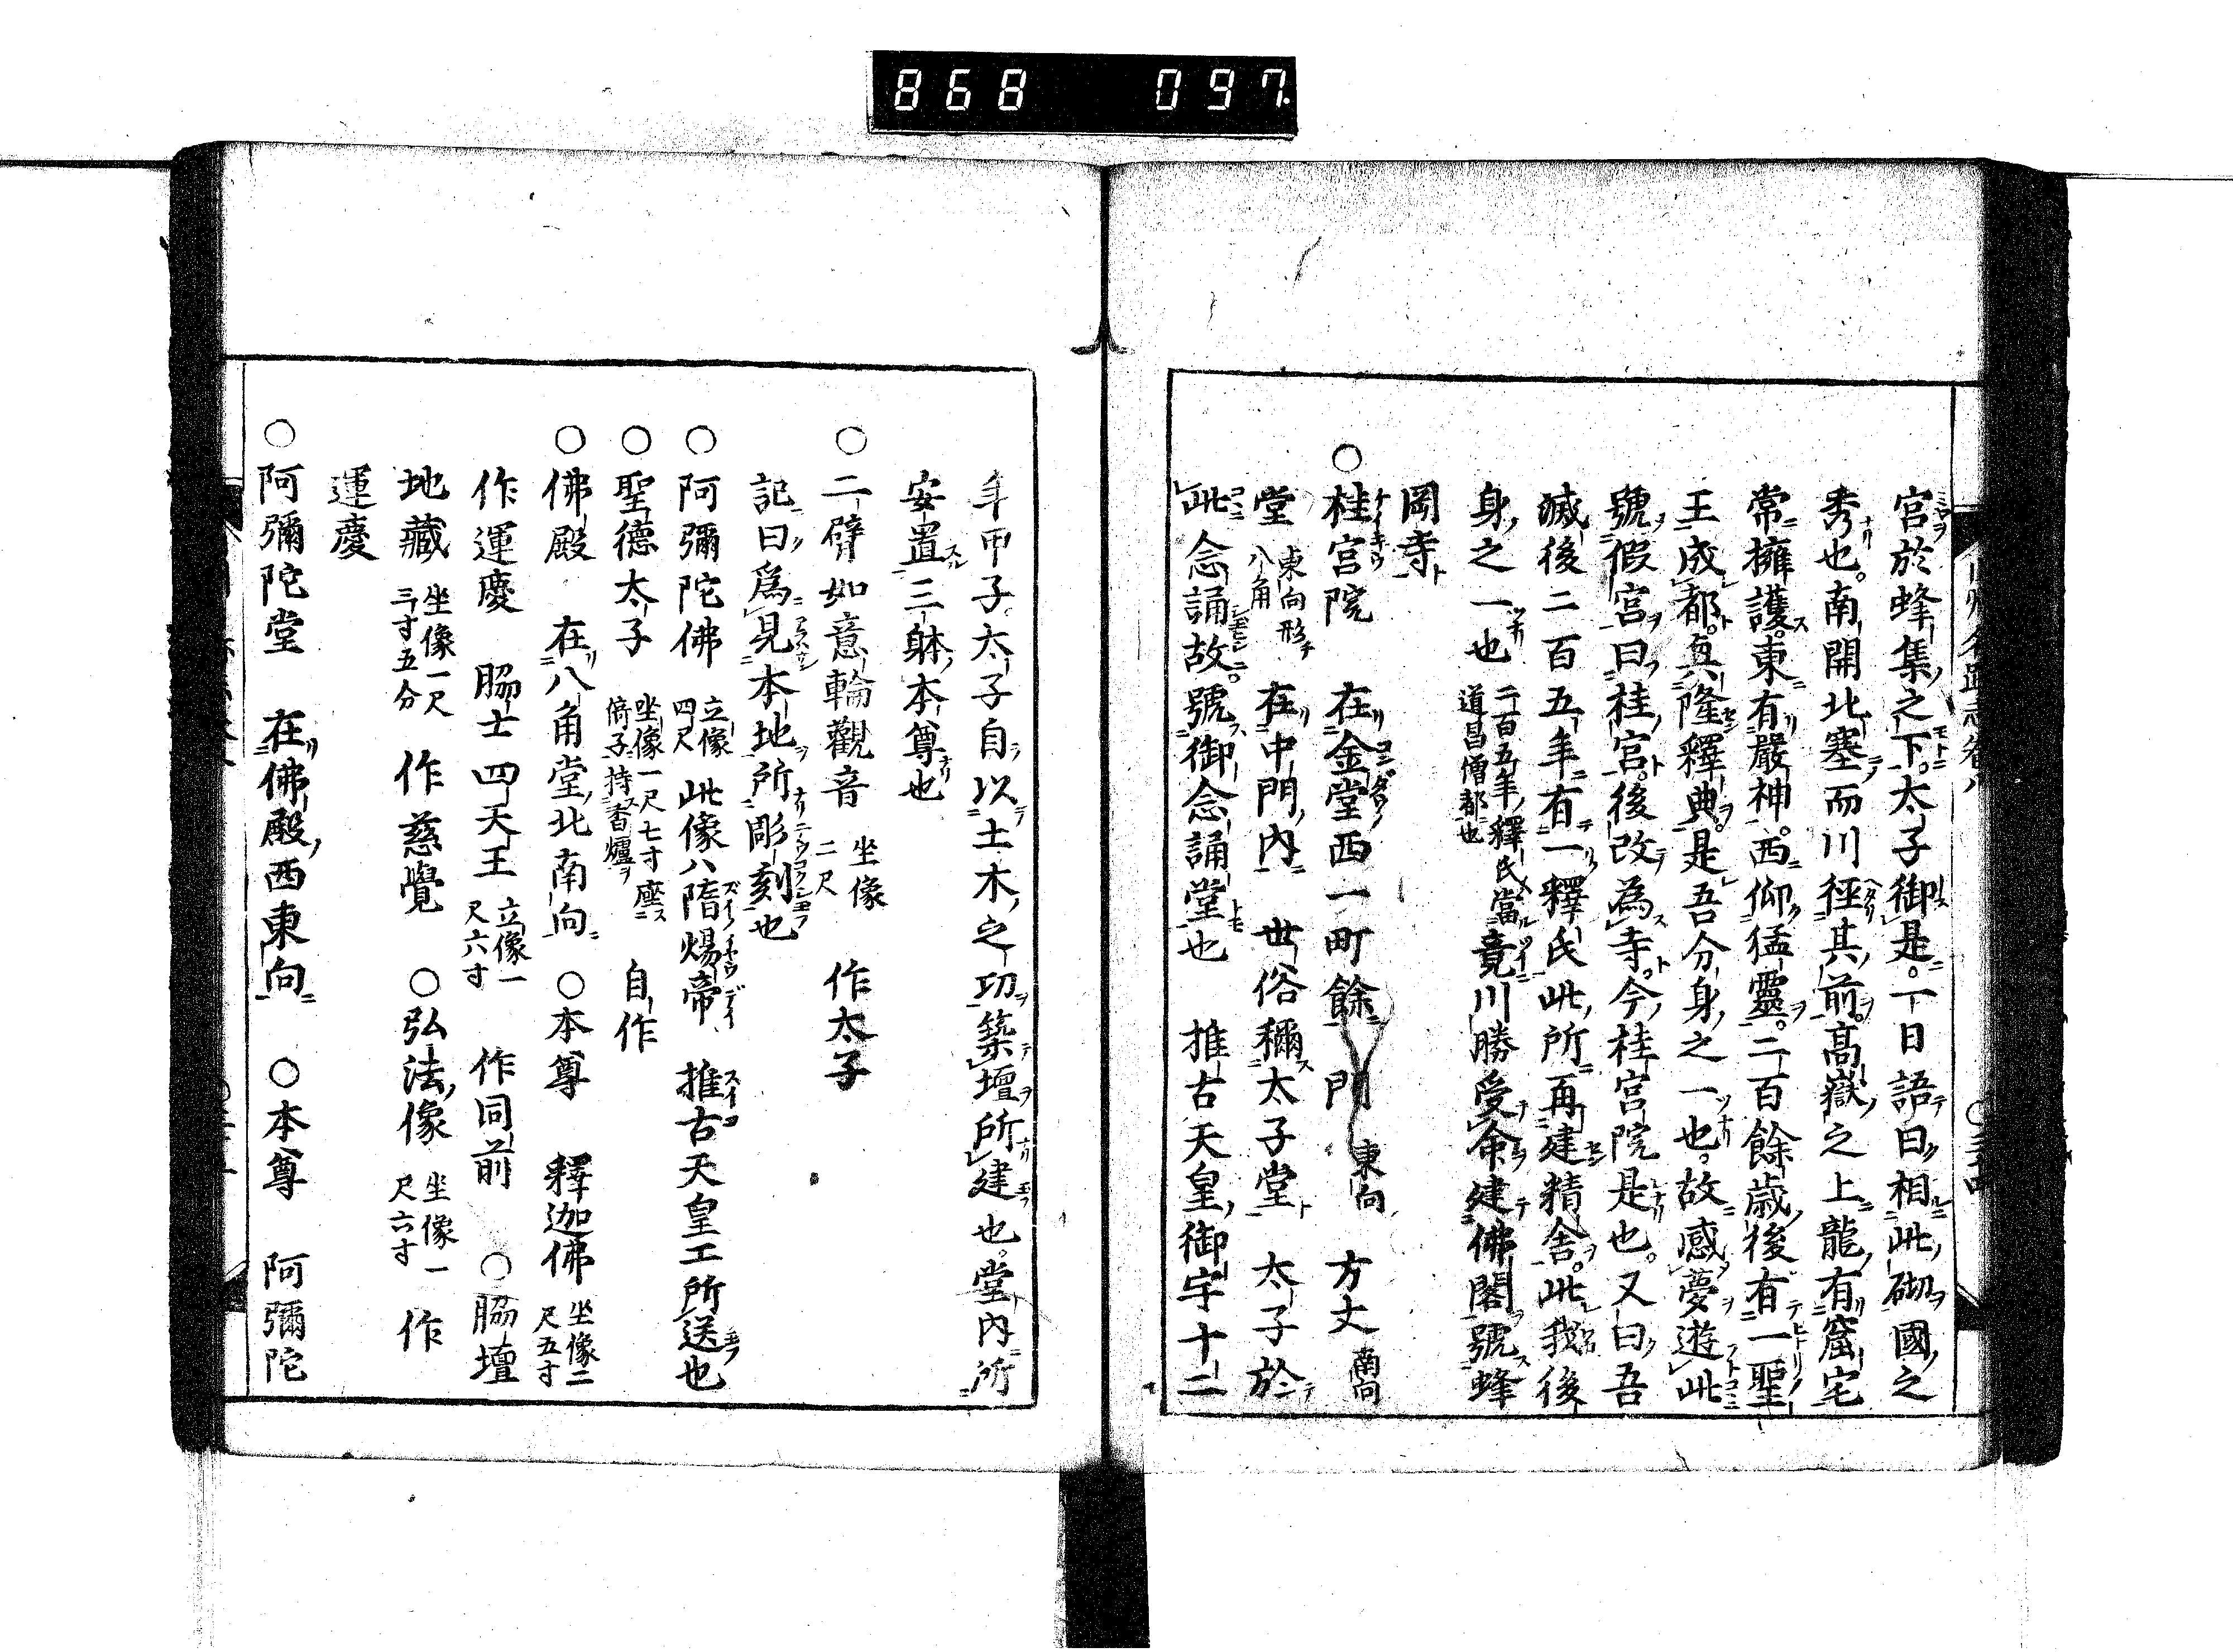 868 097.
宮於蜂集之下。太子御是。一日語曰相此砌國之
秀也。南開北塞而川徑其前。高嶽之上龍有窟宅
常擁護。東有嚴神。西仰猛靈。二百餘歲後有一聖
王成都。興隆釋典。是吾分身之一也。故感夢遊此
號假宮曰桂宮。後改為寺。今桂宮院是也。又曰吾
滅後二百五年有一釋氏此所再建精舍。此我後
身之一也 二百五年釋氏當道昌僧都也 竟川勝受命建佛閣號蜂
岡寺
○桂宮院 在金堂西一町餘 門 東向 方丈 南向
堂 東向形八角 在中門內 世俗稱太子堂 太子於
此念誦故。號御念誦堂也 推古天皇御宇十二
年甲子。太子自以土木之功築壇所建也。堂內所
安置三躰本尊也
○二臂如意輪觀音 坐像二尺 作太子
記曰為見本地所彫刻也
○阿彌陀佛 立像四尺 此像八隋煬帝 推古天皇工所送也
○聖德太子 坐像一尺七寸座倚子持香爐 自作
○佛殿 在八角堂北南向 ○本尊 釋迦佛 坐像二尺五寸
作運慶 脇士四天王 立像一尺六寸 作同前 ○脇壇
地藏 坐像一尺三寸五分 作慈覺 ○弘法像 坐像一尺六寸 作
運慶
○阿彌陀堂 在佛殿西東向 ○本尊 阿彌陀